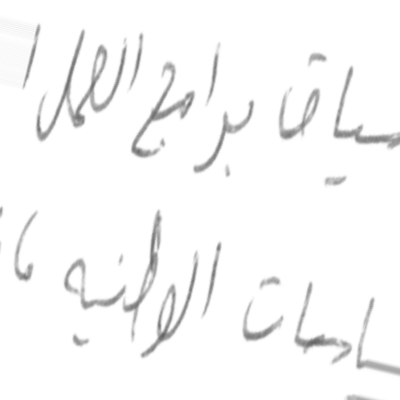 سياق برامج العمل ا
ياسات الوطنيه